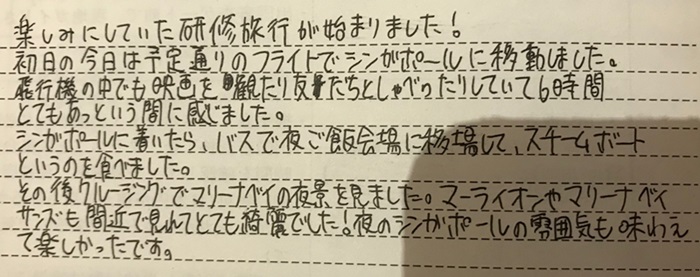 楽しみにしていた研修旅行が始まりました!
初日の今日は予定通りのフライトでシンガポールに移動しました。
飛行機の中でも映画を観たり友達たちとしゃべったりしていて6時間
とてもあっという間に感じました。
シンガポールに着いたら、バスで夜ご飯会場に移場して、スチームボート
というのを食べました。
その後クルージングでマリーナベイの夜景を見ました。マーライオンやマリーナベイ
サンズも間近で見れてとても綺麗でした!夜のシンガポールの雰囲気も味わえ
て楽しかったです。